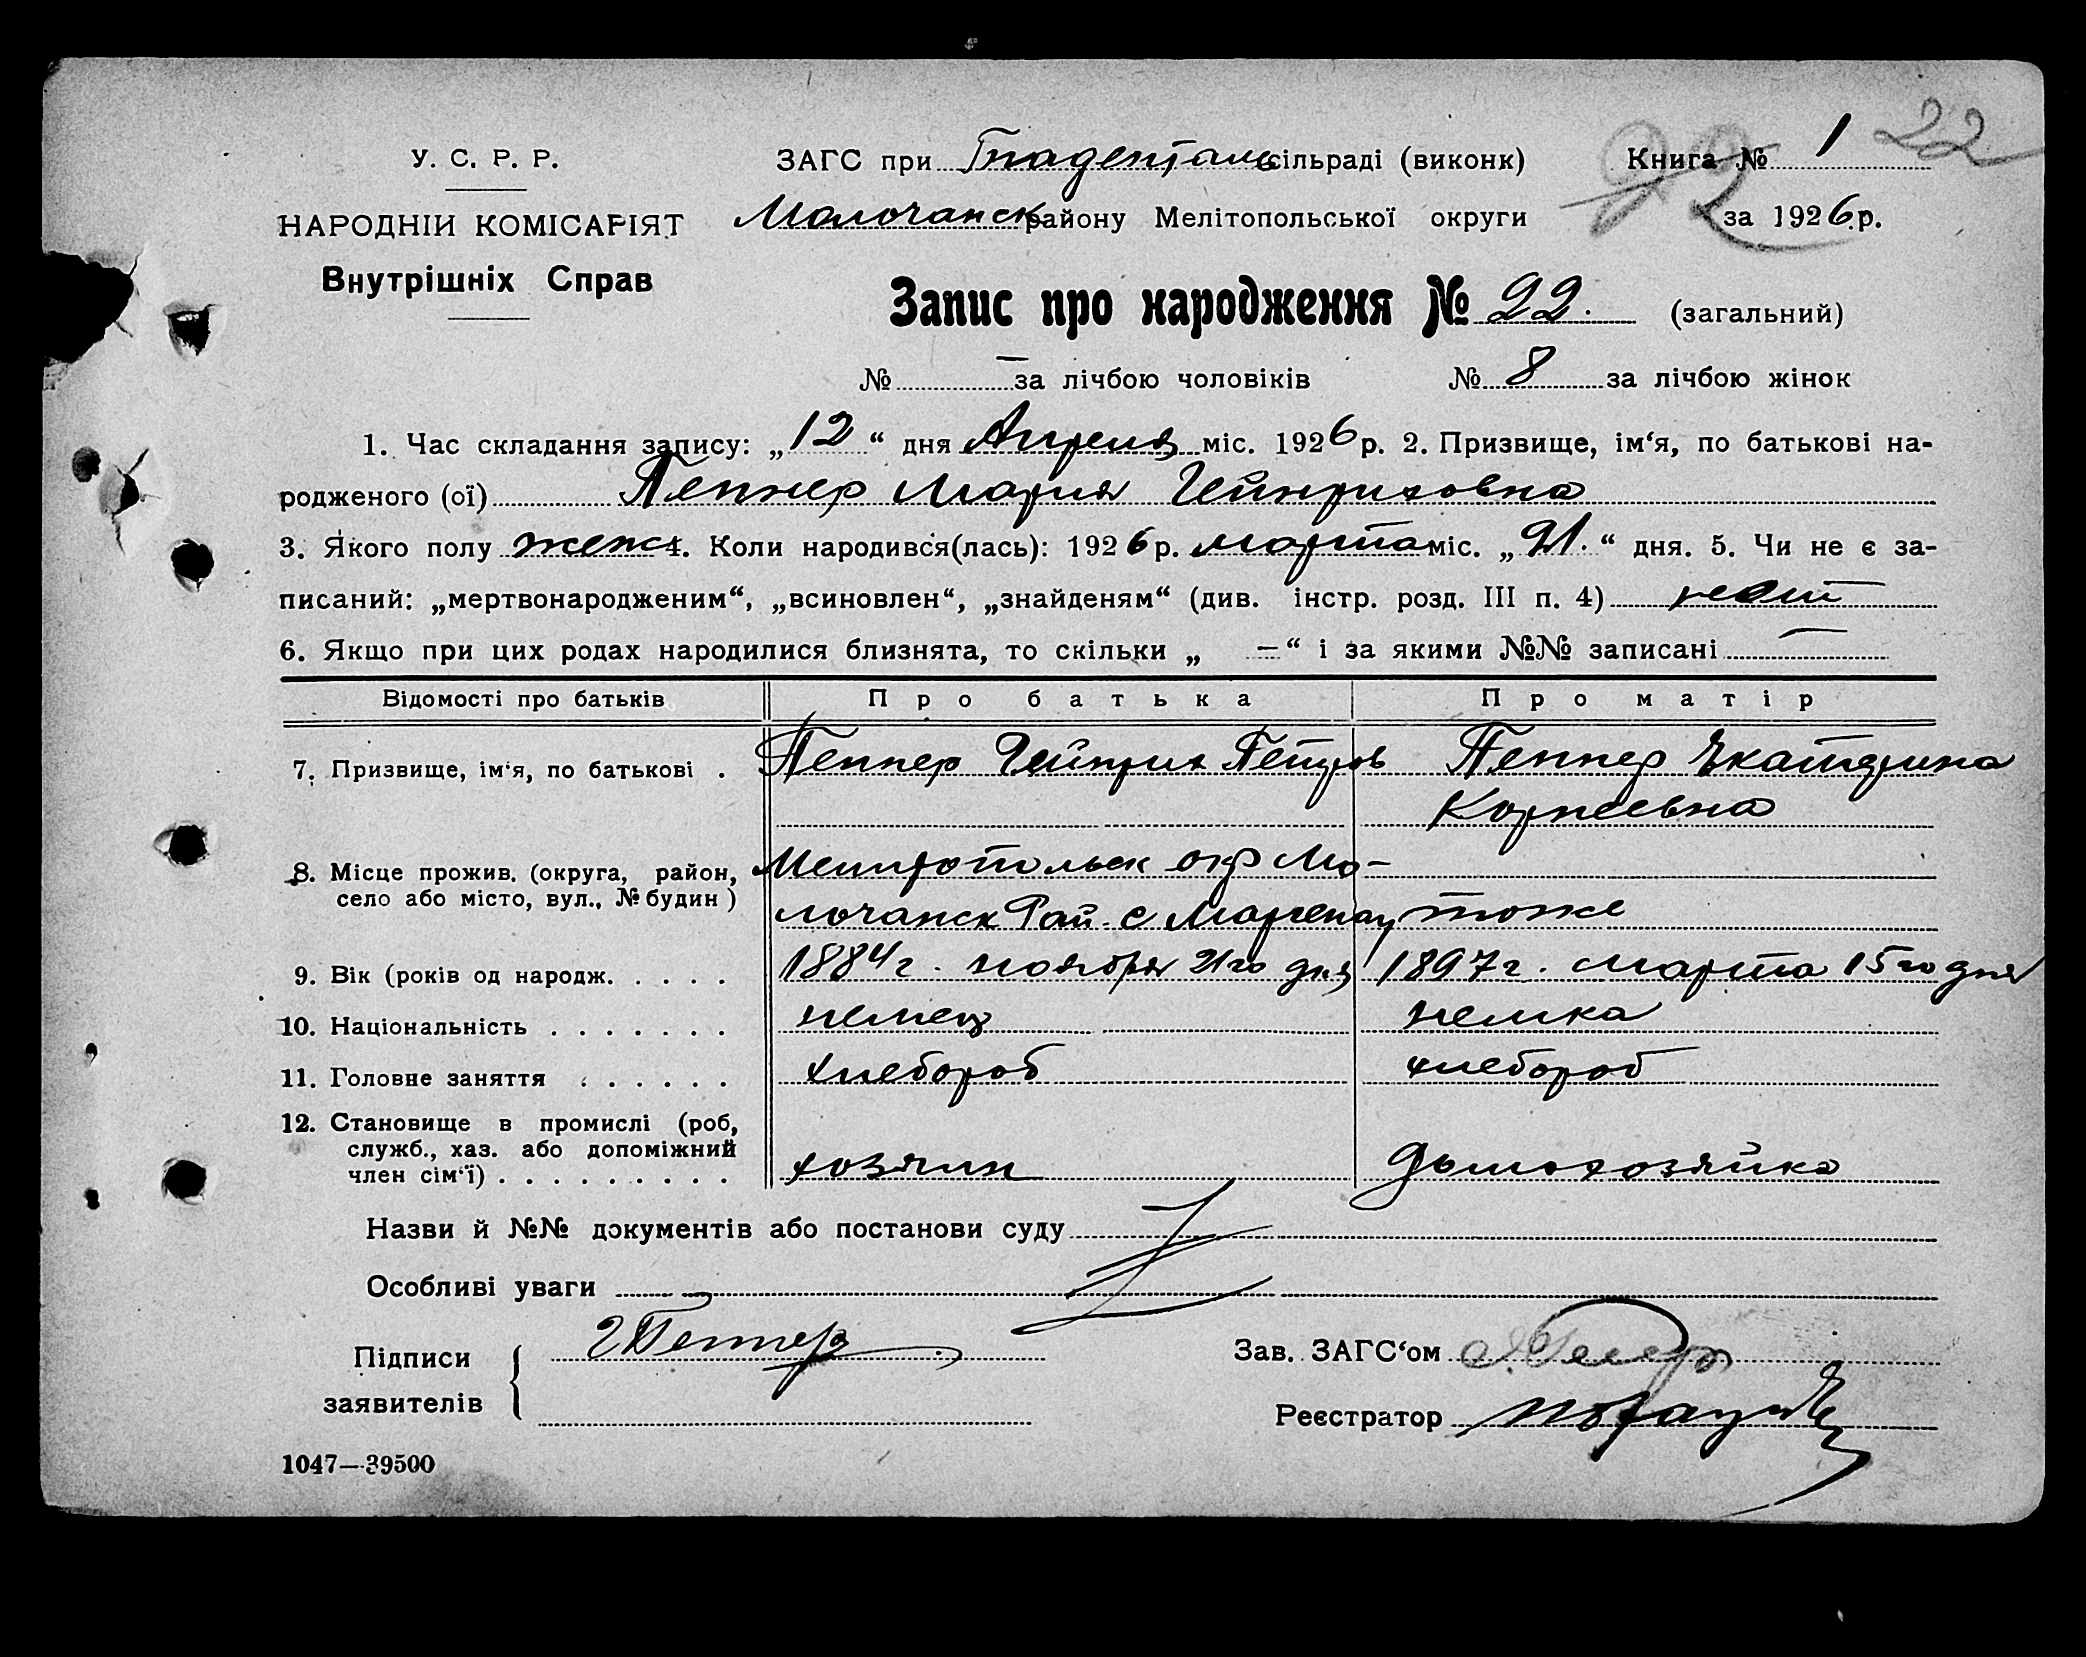 22
У. С. Р. Р.
ЗАГС при Гнаденталь сільраді (виконк)
Книга № 1
НАРОДНІЙ КОМІСАРІЯТ
Молочанск району Мелітопольської округи
за 1926 р.
Внутрішніх Справ
Запис про народження № 22. (загальний)
№ — за лічбою чоловіків № 8 за лічбою жінок
1. Час складання запису: „12“ дня Апреля міс. 1926 р. 2. Призвище, ім‘я, по батькові на-
родженого (ої) Пеннер Мария Гейнриховна
3. Якого полу женс 4. Коли народився(лась): 1926 р. марта міс. „21.“ дня. 5. Чи не є за-
писаний: „мертвонародженим“, „всиновлен“, „знайденям“ (див. інстр. розд. III п. 4) нет
6. Якщо при цих родах народилися близнята, то скільки „ —“ і за якими №№ записані —
Відомості про батьків Про батька Про матір
7. Призвище, ім‘я, по батькові . Пеннер Гейнрих Петров Пеннер Екатерина
Корнеевна
8. Місце прожив. (округа, район, село або місто, вул., № будин ) Мелитопольск окр Мо-
лочанск Рай. с Маргенау тоже
9. Вік (років од народж. . . . . 1884 г. ноября 21го дня 1897 г. марта 15го дня
10. Національність . . . . . . . немец немка
11. Головне заняття . . . . . . хлебороб хлебороб
12. Становище в промислі (роб,
служб., хаз. або допоміжний
член сім‘ї) . . . . . . . . . хозяин домохозяйка
Назви й №№ документів або постанови суду
Особливі уваги
Підписи
заявителів
Г Пеннер
Зав. ЗАГС‘ом
Реєстратор
1047—39500